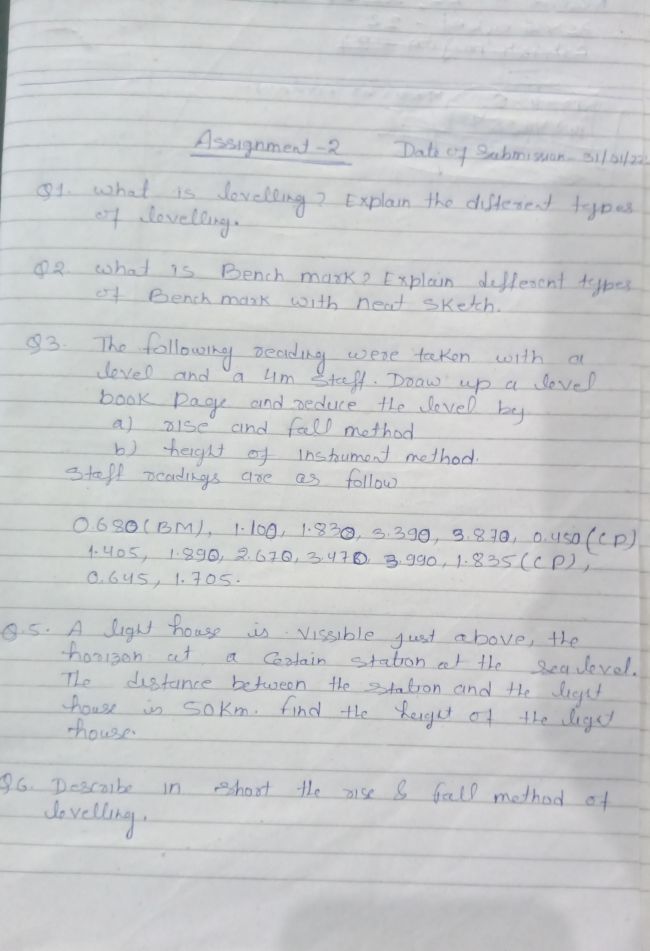 Assignment-2 Date of Submission- 31/01/22
Q1. What is levelling? Explain the different types
of levelling.
Q2. What is Bench mark? Explain different types
of Bench mark with neat sketch.
Q3. The following reading were taken with a
level and a 4m staff. Draw up a level
book page and reduce the level by
a) rise and fall method
b) height of instrument method.
Staff readings are as follow
0.680(BM), 1.100, 1.830, 3.390, 3.870, 0.450(CP)
1.405, 1.890, 2.670, 3.470, 3.990, 1.835(CP),
0.645, 1.705.
Q.5. A light house is vissible just above, the
horizon at a certain station at the sea level.
The distance between the station and the light
house is 50Km. find the height of the light
house.
Q6. Describe in short the rise & fall method of
levelling.